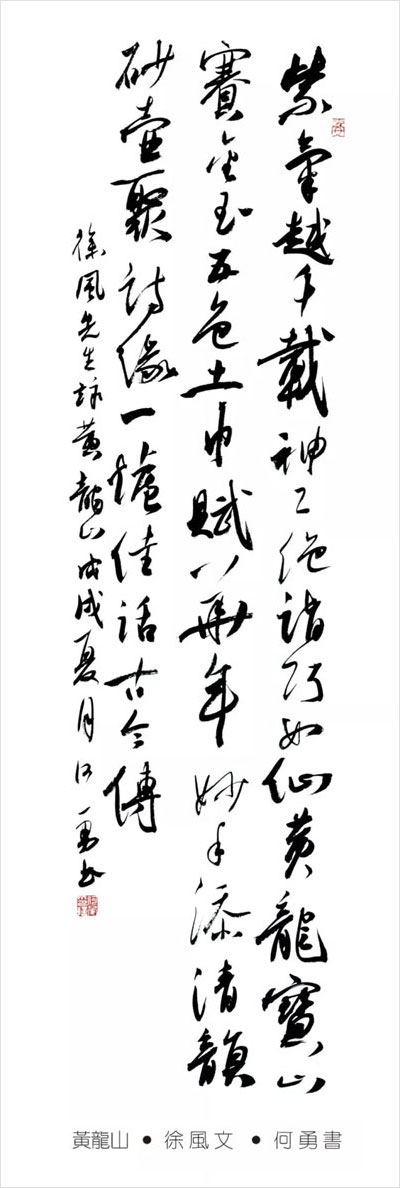 紫氣越千載神工絕詣巧如仙黄龍寶山
賽金玉五色土中賦以華年妙手添清韻
砂壺聚詩緣一爐佳話古今傳
徐風先生詠黄龍山戊戌夏月何勇書
黃龍山 ● 徐風文 ● 何勇書